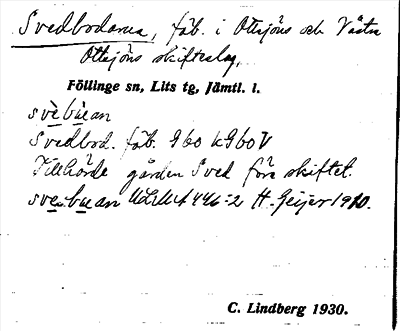 Svedbodarna, fäb. i Ottsjöns och Västra
Ottsjöns skifteslag,
Föllinge sn, Lits tg, Jämtl. l.
svèbùan
Svedbod. fäb. G60 kG60V
Tillhörde gården Sved före skiftet.
svenbuan ULMA 446:2 H. Geijer 1910.
C. Lindberg 1930.